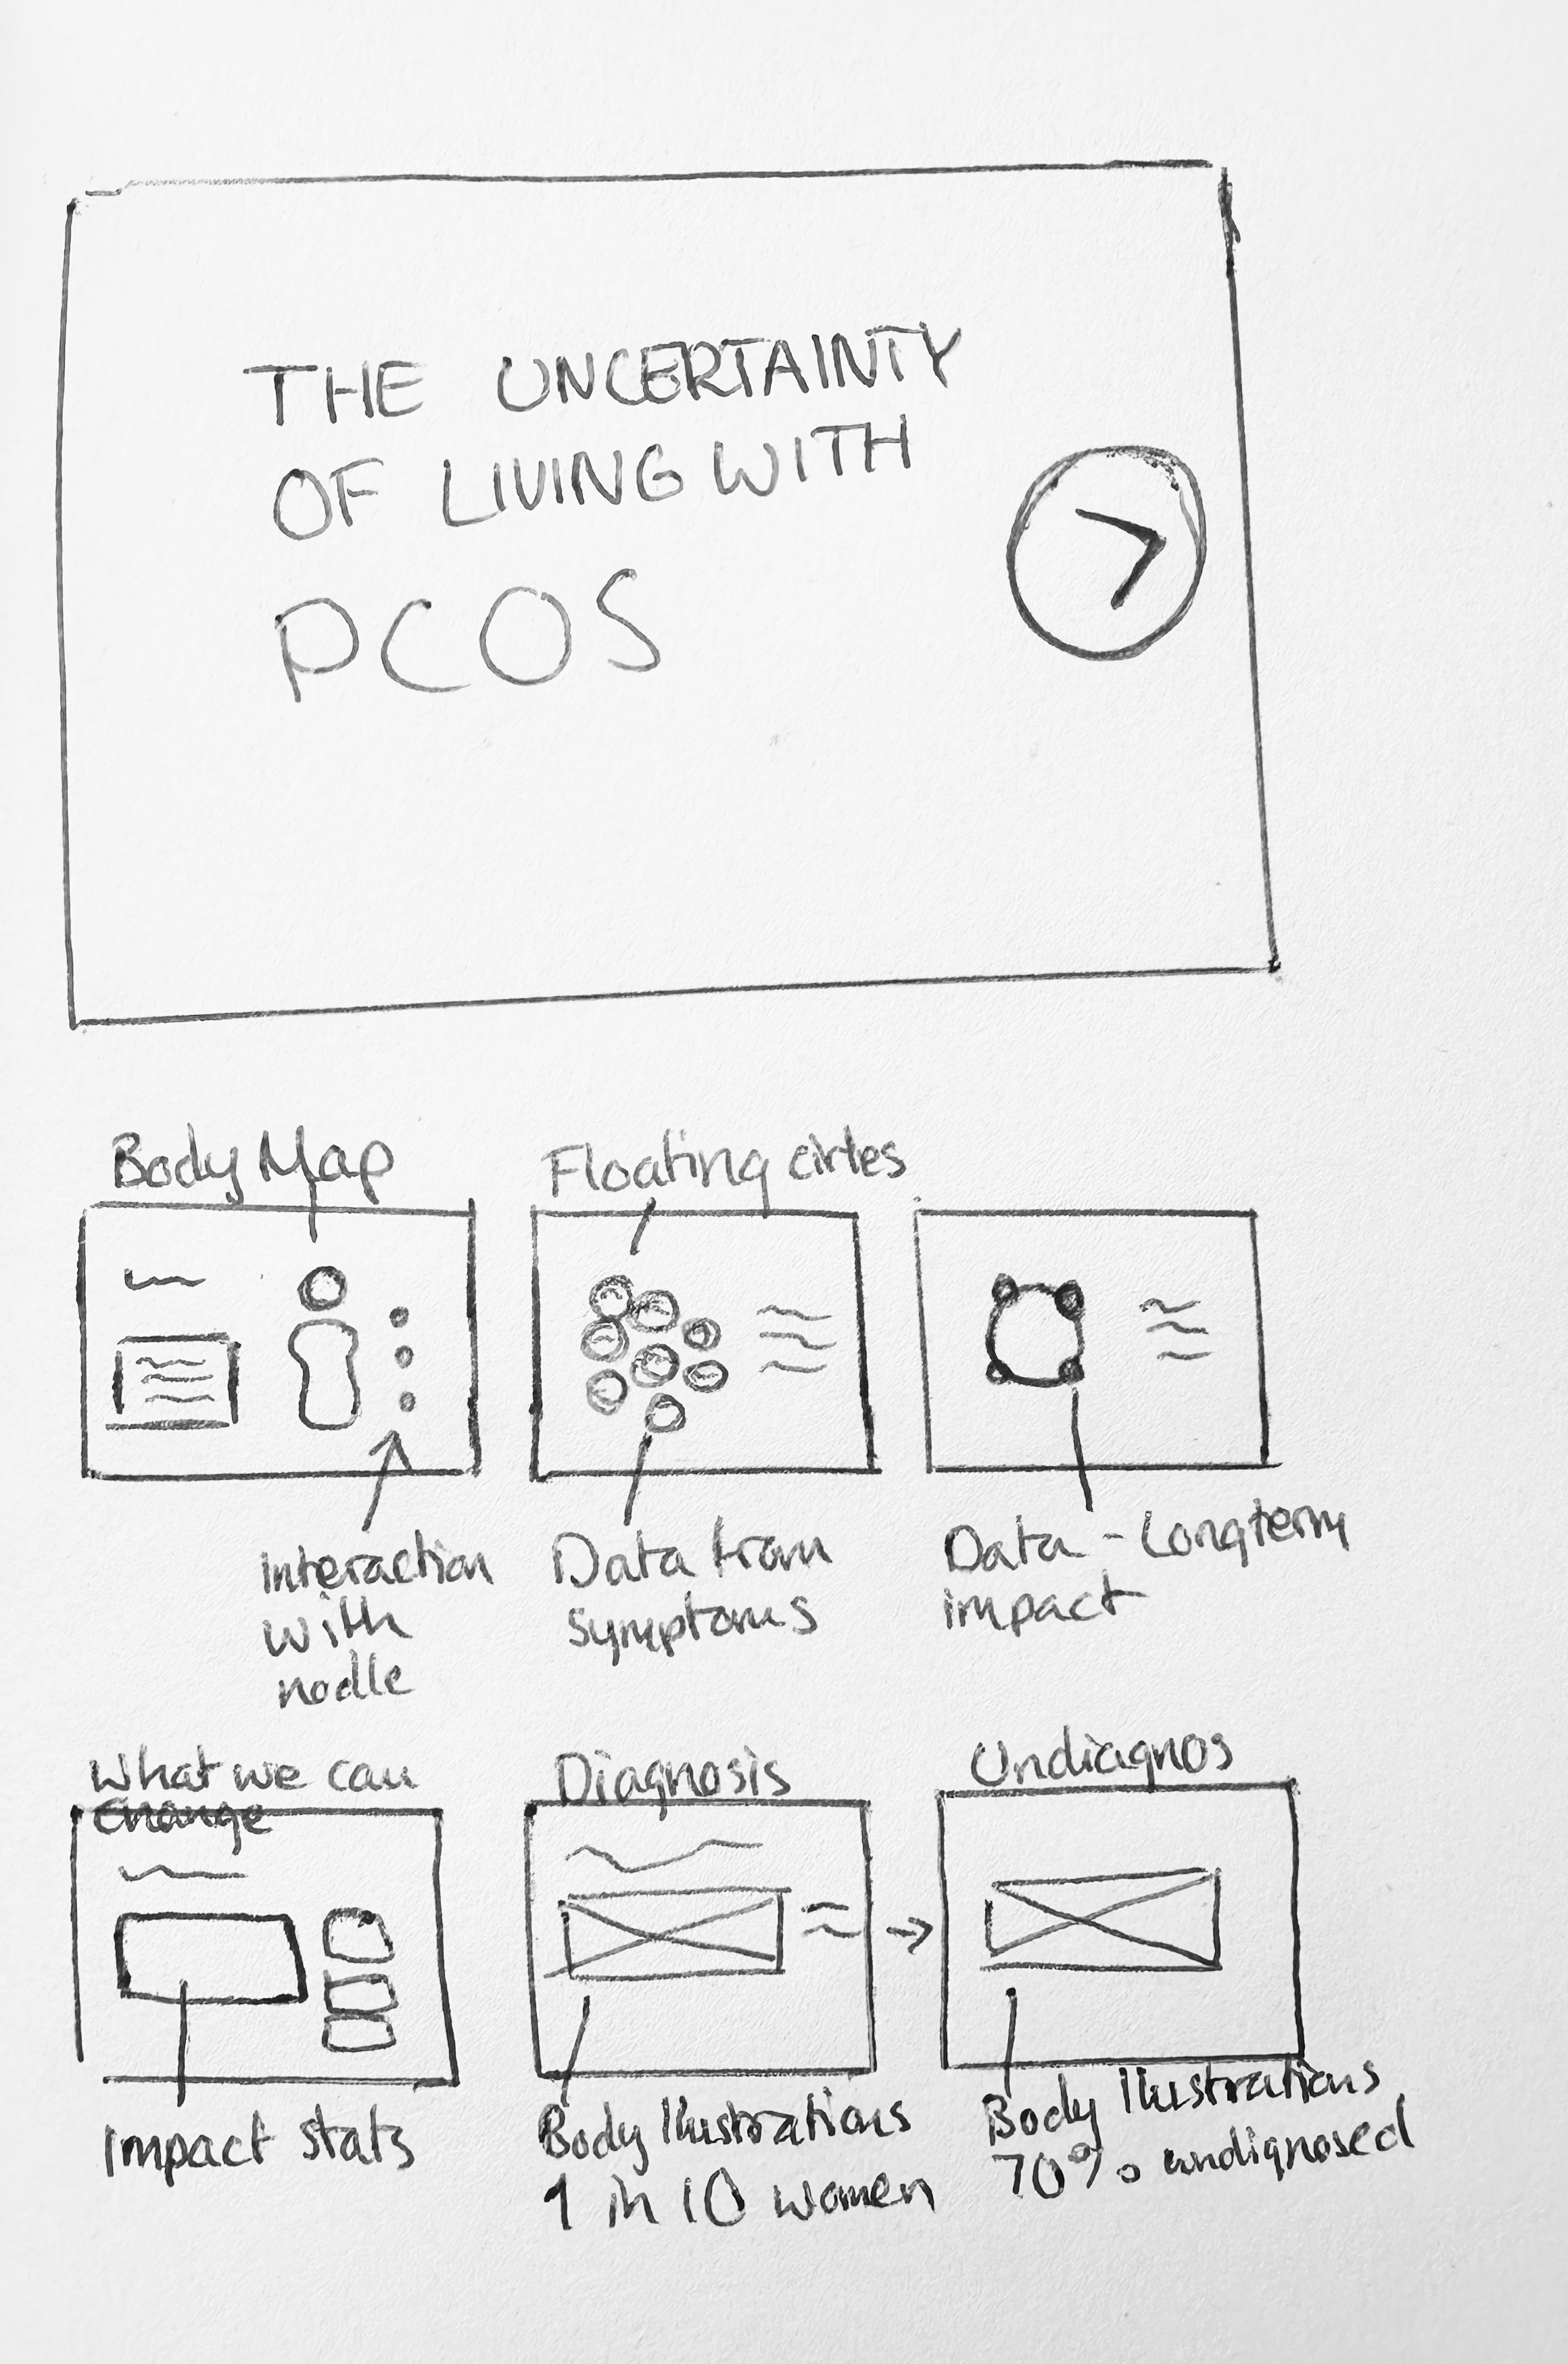 THE UNCERTAINTY
OF LIVING WITH
PCOS
Body Map
Floating cirles
Interaction
with
nodle
Data from
symptoms
Data - Longterm
impact
What we can
change
Diagnosis
Undiagnos
Impact stats
Body Ilustrations
1 in 10 women
Body Ilustrations
70% undignosed